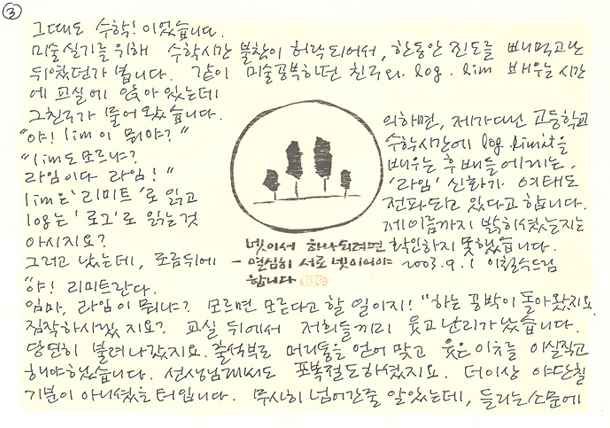 ③
그때도 수학! 이었습니다.
미술실기를 위해 수학시간 불참이 허락되어서, 한동안 진도를 빼먹고난
뒤였던가 봅니다. 같이 미술공부하던 친구와 log. lim 배우는 시간
에 교실에 앉아 있는데
그친구가 물어 왔습니다.
"야! lim이 뭐야?"
"lim도 모르냐?
라임이다 라임!"
lim은 '리미트'로 읽고
log는 '로그'로 읽는 것
아시지요?
그러고 났는데, 조금뒤에
"야! 리미트란다.
임마, 라임이 뭐냐? 모르면 모른다고 할 일이지!" 하는 꽁박이 돌아왔지요.
짐작하시겠지요? 교실 뒤에서 저희들끼리 웃고 난리가 났습니다.
당연히 불려나갔지요. 출석부로 머리통을 얻어 맞고 웃은 이유를 이실직고
해야했습니다. 선생님께서도 포복절도하셨지요. 더이상 야단칠
기분이 아니셨을 터입니다. 무사히 넘어간줄 알았는데, 들리는 소문에
의하면, 제가 다닌 고등학교
수학시간에 log limit을
배우는 후배들에게는,
'라임' 신화가 여태도
전파되고 있다고 합니다.
제 이름까지 밝히셨는지는
확인하지 못했습니다.
2003.9.1 이철수드림
넷이서 하나되려면
- 열심히 서로 넷이어야
합니다